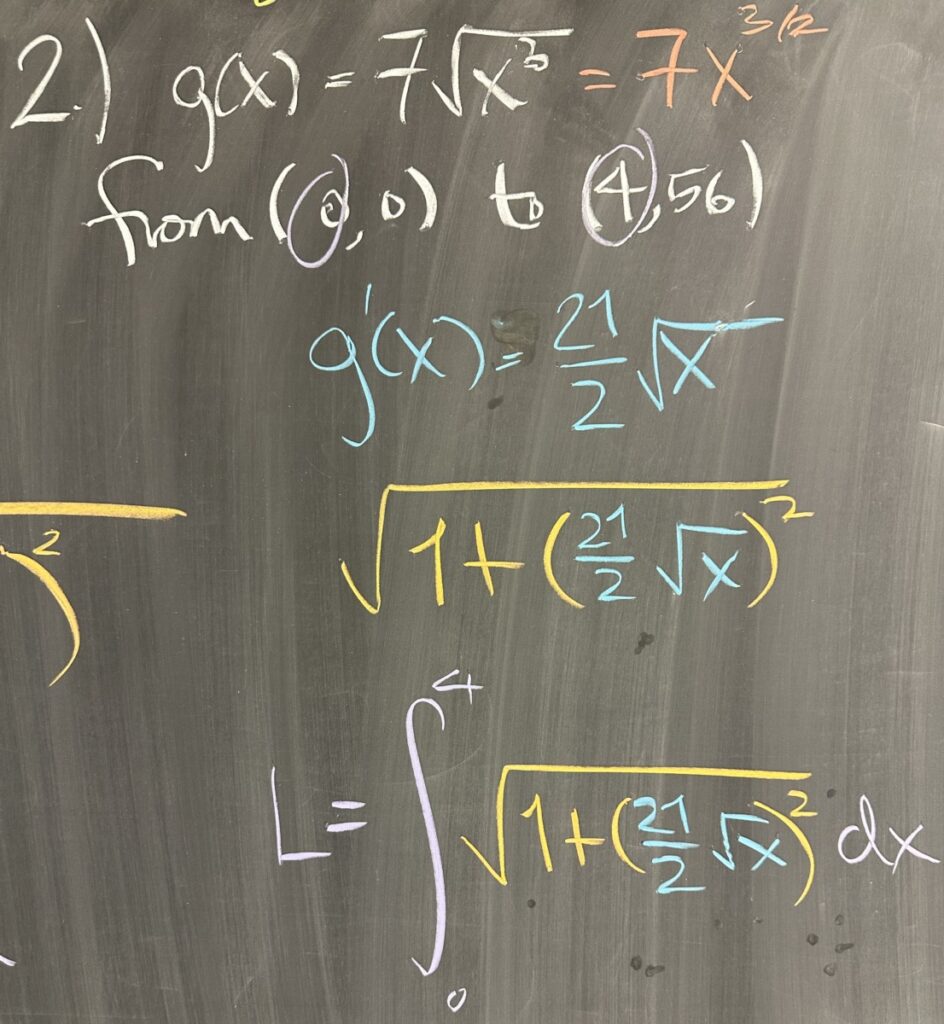 2.) g(x) = 7√x³ = 7x^3/2
from (0,0) to (4,56)
g'(x) = 21/2 √x
√1+(21/2 √x)²
2)
L = ∫₀⁴ √1+(21/2 √x)² dx